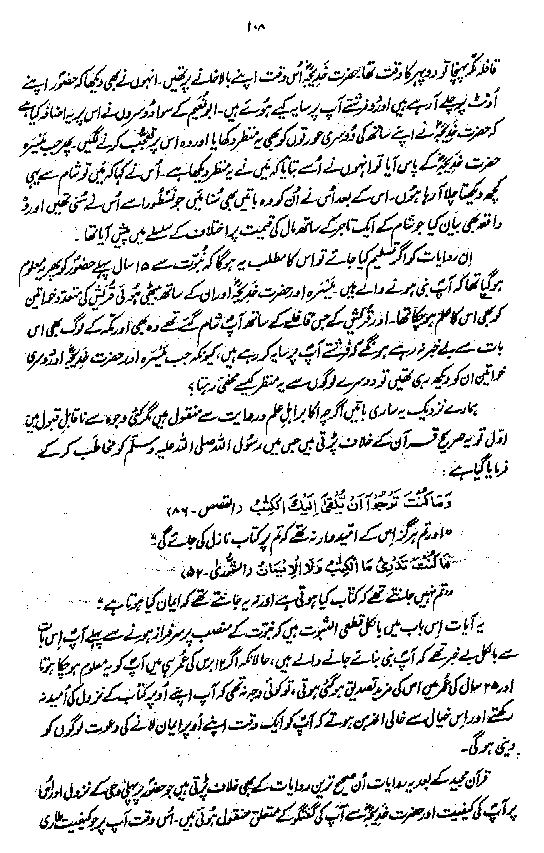 ۱۰۸
قافلہ مکہ پہنچا تو دوپہر کا وقت تھا، حضرت خدیجہؓ اُس وقت اپنے بالاخانے پر تھیں۔ انہوں نے بھی دیکھا کہ حضورؐ اپنے
اُونٹ پر چلے آ رہے ہیں اور دو فرشتے آپ پر سایہ کیے ہوئے ہیں۔ ابو نُعیم کے سوا دوسروں نے اس پر یہ اضافہ کیا ہے
کہ حضرت خدیجہؓ نے اپنے ساتھ کی دوسری عورتوں کو بھی یہ منظر دکھایا اور وہ اس پر تعجب کرنے لگیں۔ پھر جب مَیسَرہ
حضرت خدیجہؓ کے پاس آیا تو انہوں نے اُسے بتایا کہ میں نے یہ منظر دیکھا ہے۔ اُس نے کہا کہ میں تو شام سے یہی
کچھ دیکھتا چلا آ رہا ہوں۔ اس کے بعد اُس نے اُن کو وہ باتیں بھی سُنائیں جو نسطورا سے اُس نے سُنی تھیں اور وہ
واقعہ بھی بیان کیا جو شام کے ایک تاجر کے ساتھ مال کی قیمت پر اختلاف کے سلسلے میں پیش آیا تھا۔
اِن روایات کو اگر تسلیم کیا جائے تو اس کا مطلب یہ ہوگا کہ نبوت سے ۱۵ سال پہلے حضورؐ کو پھر یہ معلوم
ہو گیا تھا کہ آپؐ نبی ہونے والے ہیں۔ مَیسَرہ اور حضرت خدیجہؓ اور ان کے ساتھ بیٹھی ہوئی قریش کی متعدد خواتین
کو بھی اس کا علم ہو چکا تھا۔ اور قریش کے جس قافلے کے ساتھ آپؐ شام گئے تھے وہ بھی اور مکہ کے لوگ بھی اس
بات سے بے خبر نہ رہے ہونگے کہ فرشتے آپؐ پر سایہ کر رہے ہیں، کیونکہ جب مَیسَرہ اور حضرت خدیجہؓ اور دوسری
خواتین ان کو دیکھ رہی تھیں تو دوسرے لوگوں سے یہ منظر کیسے مخفی رہتا؟
ہمارے نزدیک یہ ساری باتیں اگرچہ اکابر اہلِ علم و روایت سے منقول ہیں مگر کئی وجوہ سے ناقابلِ قبول ہیں
اوّل تو یہ صریح قرآن کے خلاف پڑتی ہیں جس میں رسول اللہ صلی اللہ علیہ وسلم کو مخاطب کر کے
فرمایا گیا ہے:
وَمَا كُنْتَ تَرْجُوْٓا اَنْ يُّلْقٰٓى اِلَيْكَ الْكِتٰبُ (القصص۔ ۸۶)
"اور تم ہرگز اِس کے اُمیدوار نہ تھے کہ تم پر کتاب نازل کی جائے گی"
مَا كُنْتَ تَدْرِىْ مَا الْكِتٰبُ وَلَا الْاِيْمَانُ (الشوریٰ۔ ۵۲)
"تم نہیں جانتے تھے کہ کتاب کیا ہوتی ہے اور نہ یہ جانتے تھے کہ ایمان کیا ہوتا ہے"
یہ آیات اِس باب میں بالکل قطعی الثبوت ہیں کہ نبوت کے منصب پر سرفراز ہونے سے پہلے آپؐ اِس بات
سے بالکل بے خبر تھے کہ آپؐ نبی بنائے جانے والے ہیں، حالانکہ اگر ۱۲ برس کی عُمر ہی میں آپؐ کو یہ معلوم ہو چکا ہوتا
اور ۲۵ سال کی عُمر میں اس کی مزید تصدیق ہو گئی ہوتی، تو کوئی وجہ نہ تھی کہ آپ اپنے اوپر کتاب کے نزول کی اُمید نہ
رکھتے اور اِس خیال سے خالی الذہن ہوتے کہ آپؐ کو ایک وقت اپنے اُوپر ایمان لانے کی دعوت لوگوں کو
دینی ہوگی۔
قرآن مجید کے بعد یہ روایات اُن صحیح ترین روایات کے بھی خلاف پڑتی ہیں جو حضورؐ پر پہلی وحی کے نزول اور اُس
پر آپؐ کی کیفیت اور حضرت خدیجہؓ سے آپؐ کی گفتگو کے متعلق منقول ہوئی ہیں۔ اُس وقت آپؐ پر جو کیفیت طاری